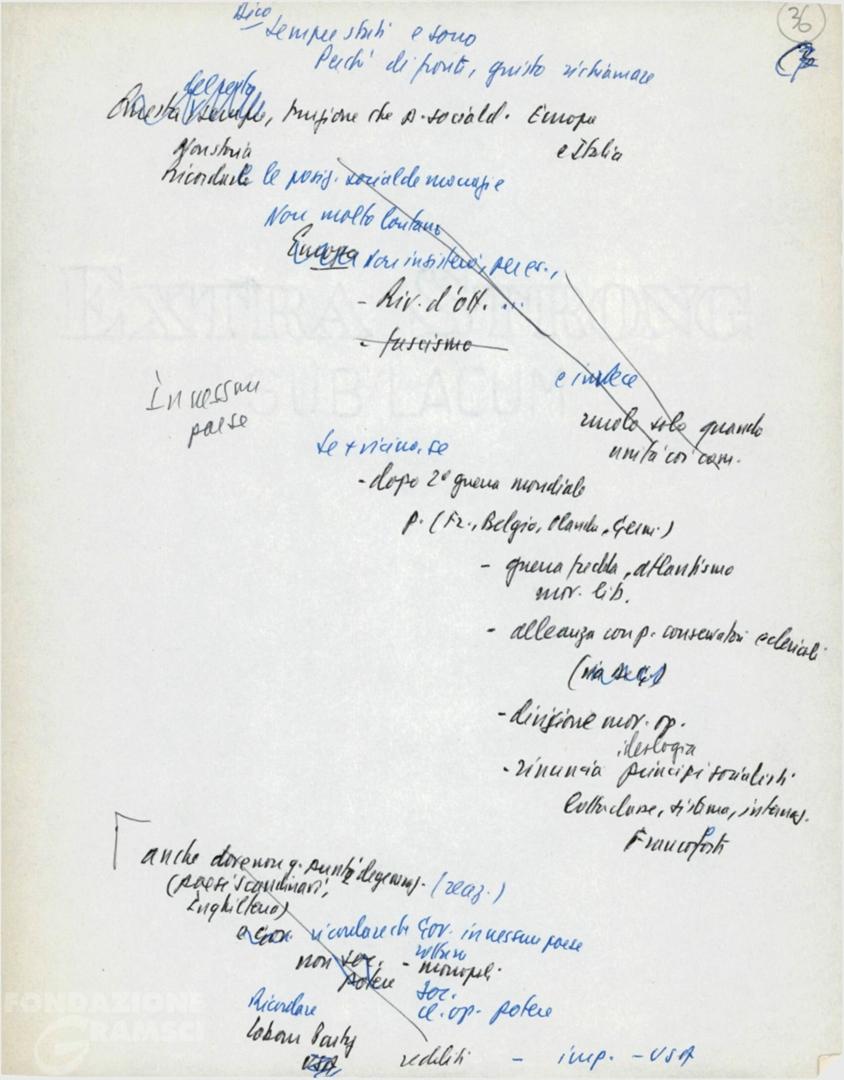 36
Dico
sempre stati e sono
Perché di fronte, giusto richiamare
del resto
Questa sempre, funzione che p. sociald. Europa
Non storia e Italia
Ricordare le posiz. socialdemocrazie
Non molto lontano
Europa Non insisterò, per es.,
- Riv. d'ott. ...
- fascismo
e invece
In nessun
paese
ruolo solo quando
unità coi com.
Se + vicino, se
- dopo 2ª guerra mondiale
p. (Fr., Belgio, Olanda, Germ.)
- guerra fredda, atlantismo
mov. lib.
- alleanza con p. conservatori e clericali
- divisione mov. op.
ideologia
- rinuncia principi socialisti
lotta classe, sistema, internaz.
Francoforte
anche dove non g. punti degeneraz. (reaz.)
(paesi scandinavi,
Inghilterra)
e Gov. ricordare che Gov. in nessun paese
non soc. - monopoli
potere soc.
cl. op. potere
Ricordare
Labour Party
USA redditi - imp. - USA
EXTRA STRONG
SUB LACUM
FONDAZIONE
GRAMSCI